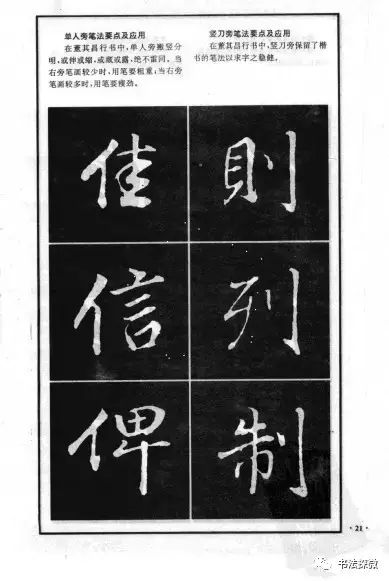 单人旁笔法要点及应用
在董其昌行书中,单人旁撇竖分
明,或伸或缩,或藏或露,绝不雷同。当
右旁笔画较少时,用笔要粗重;当右旁
笔画较多时,用笔要瘦劲。
竖刀旁笔法要点及应用
在董其昌行书中,竖刀旁保留了楷
书的笔法以求字之稳健。
佳 則
信 列
俾 制
·21·
书法探微